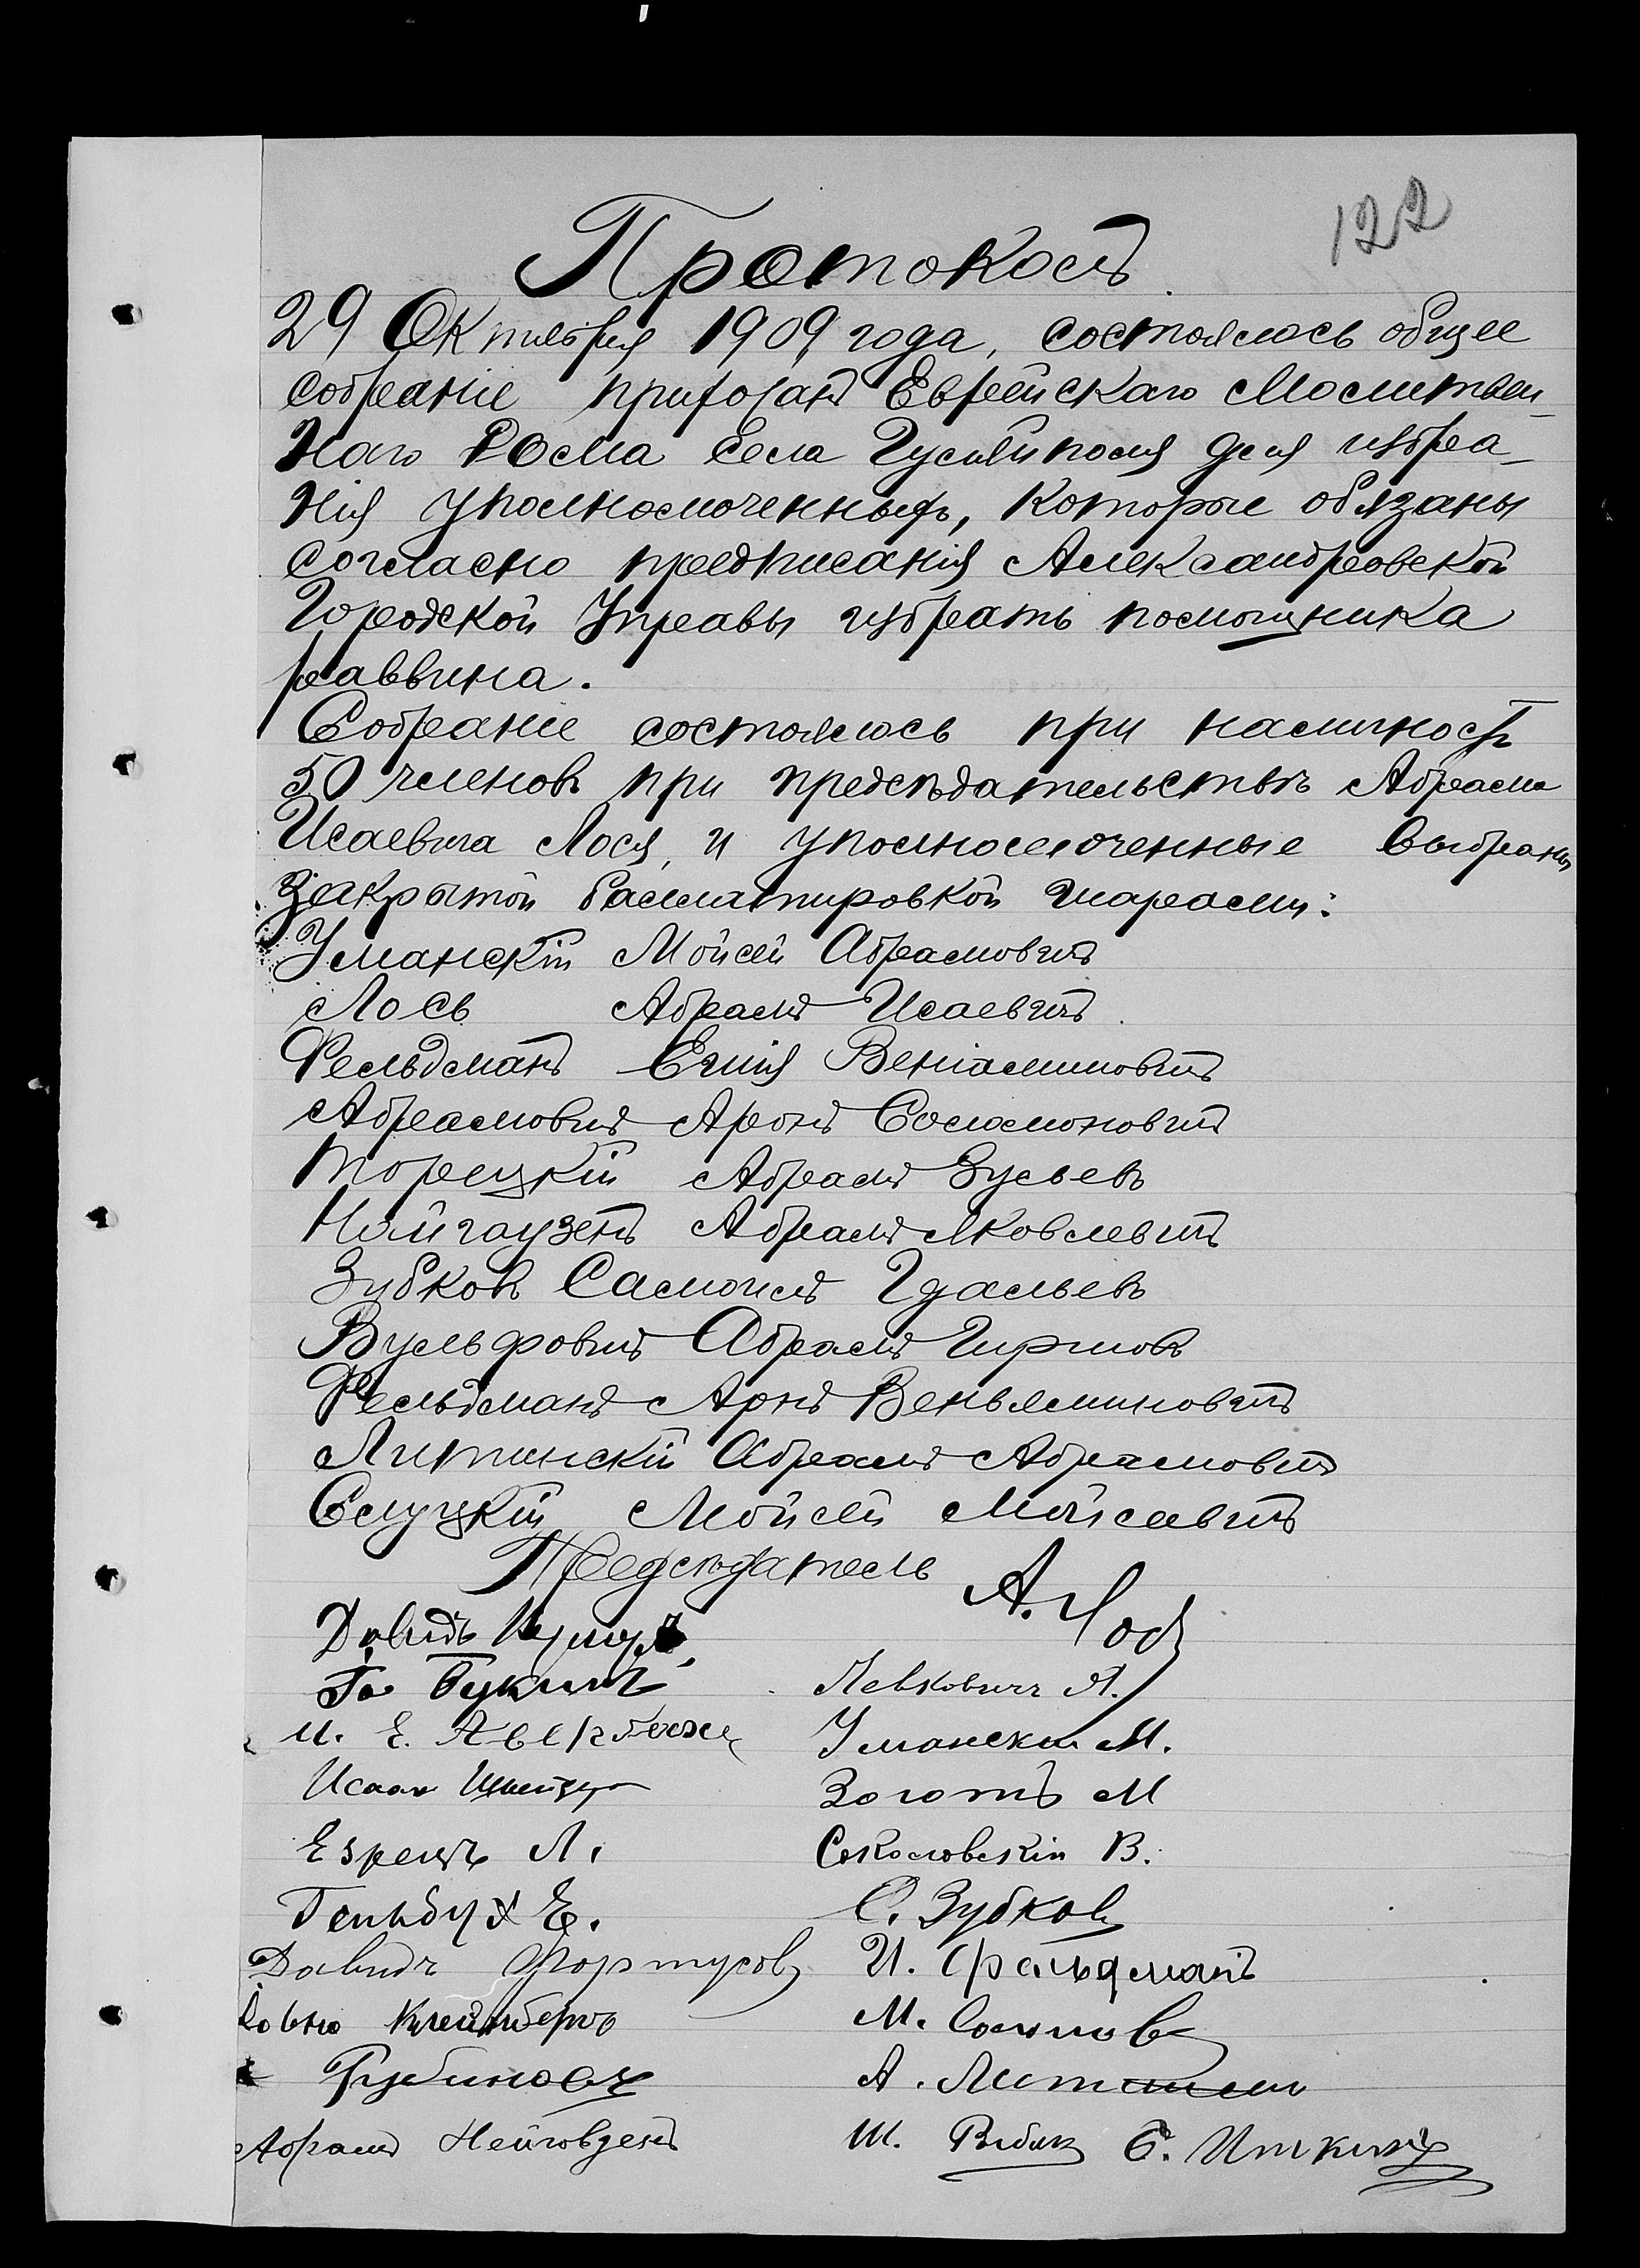 122
Протоколъ.
29 Октября 1909 года, состоялось общее
собраніе прихожанъ Еврейскаго Молитвен-
наго Дома села Гуляйполя для избра-
нія уполномоченныхъ, которые обязаны
согласно предписанія Александровской
Городской Управы избрать помощника
раввина.
Собраніе состоялось при наличности
50 членовъ при предсѣдательствѣ Абрама
Исаевича Лося, и уполномоченные выбраны
закрытой баллатировкой шарами:
Уманскій Мойсей Абрамовичъ
Лось Абрамъ Исаевичъ.
Фельдманъ Еншя Веніаминовичъ
Абрамовичъ Аронъ Соломоновичъ
Торецкій Абрамъ Зусьевъ
Нейгаузенъ Абрамъ Яковлевичъ
Зубковъ Самоилъ Гдальевъ
Вульфовичъ Абрамъ Гиршовъ
Фельдманъ Арнъ Веньяминовичъ
Литинскій Абрамъ Абрамовичъ
Слуцкій Мойсей Мойсеевичъ
Предсѣдатель А. Лось
Давидъ
Левковичъ А.
И. Е. Авербахъ
Уманскій М.
Исаакъ
Золотъ М
Езрецъ Л.
Соколовскій В.
Гельбух Е.
С. Зубковъ
Давидъ Фортусовъ
И. Фельдманъ
Клейнбергъ
М.
Рубиновъ
А.
Абрамъ Нейговзенъ
Ш. Рыбакъ С. Иткинъ